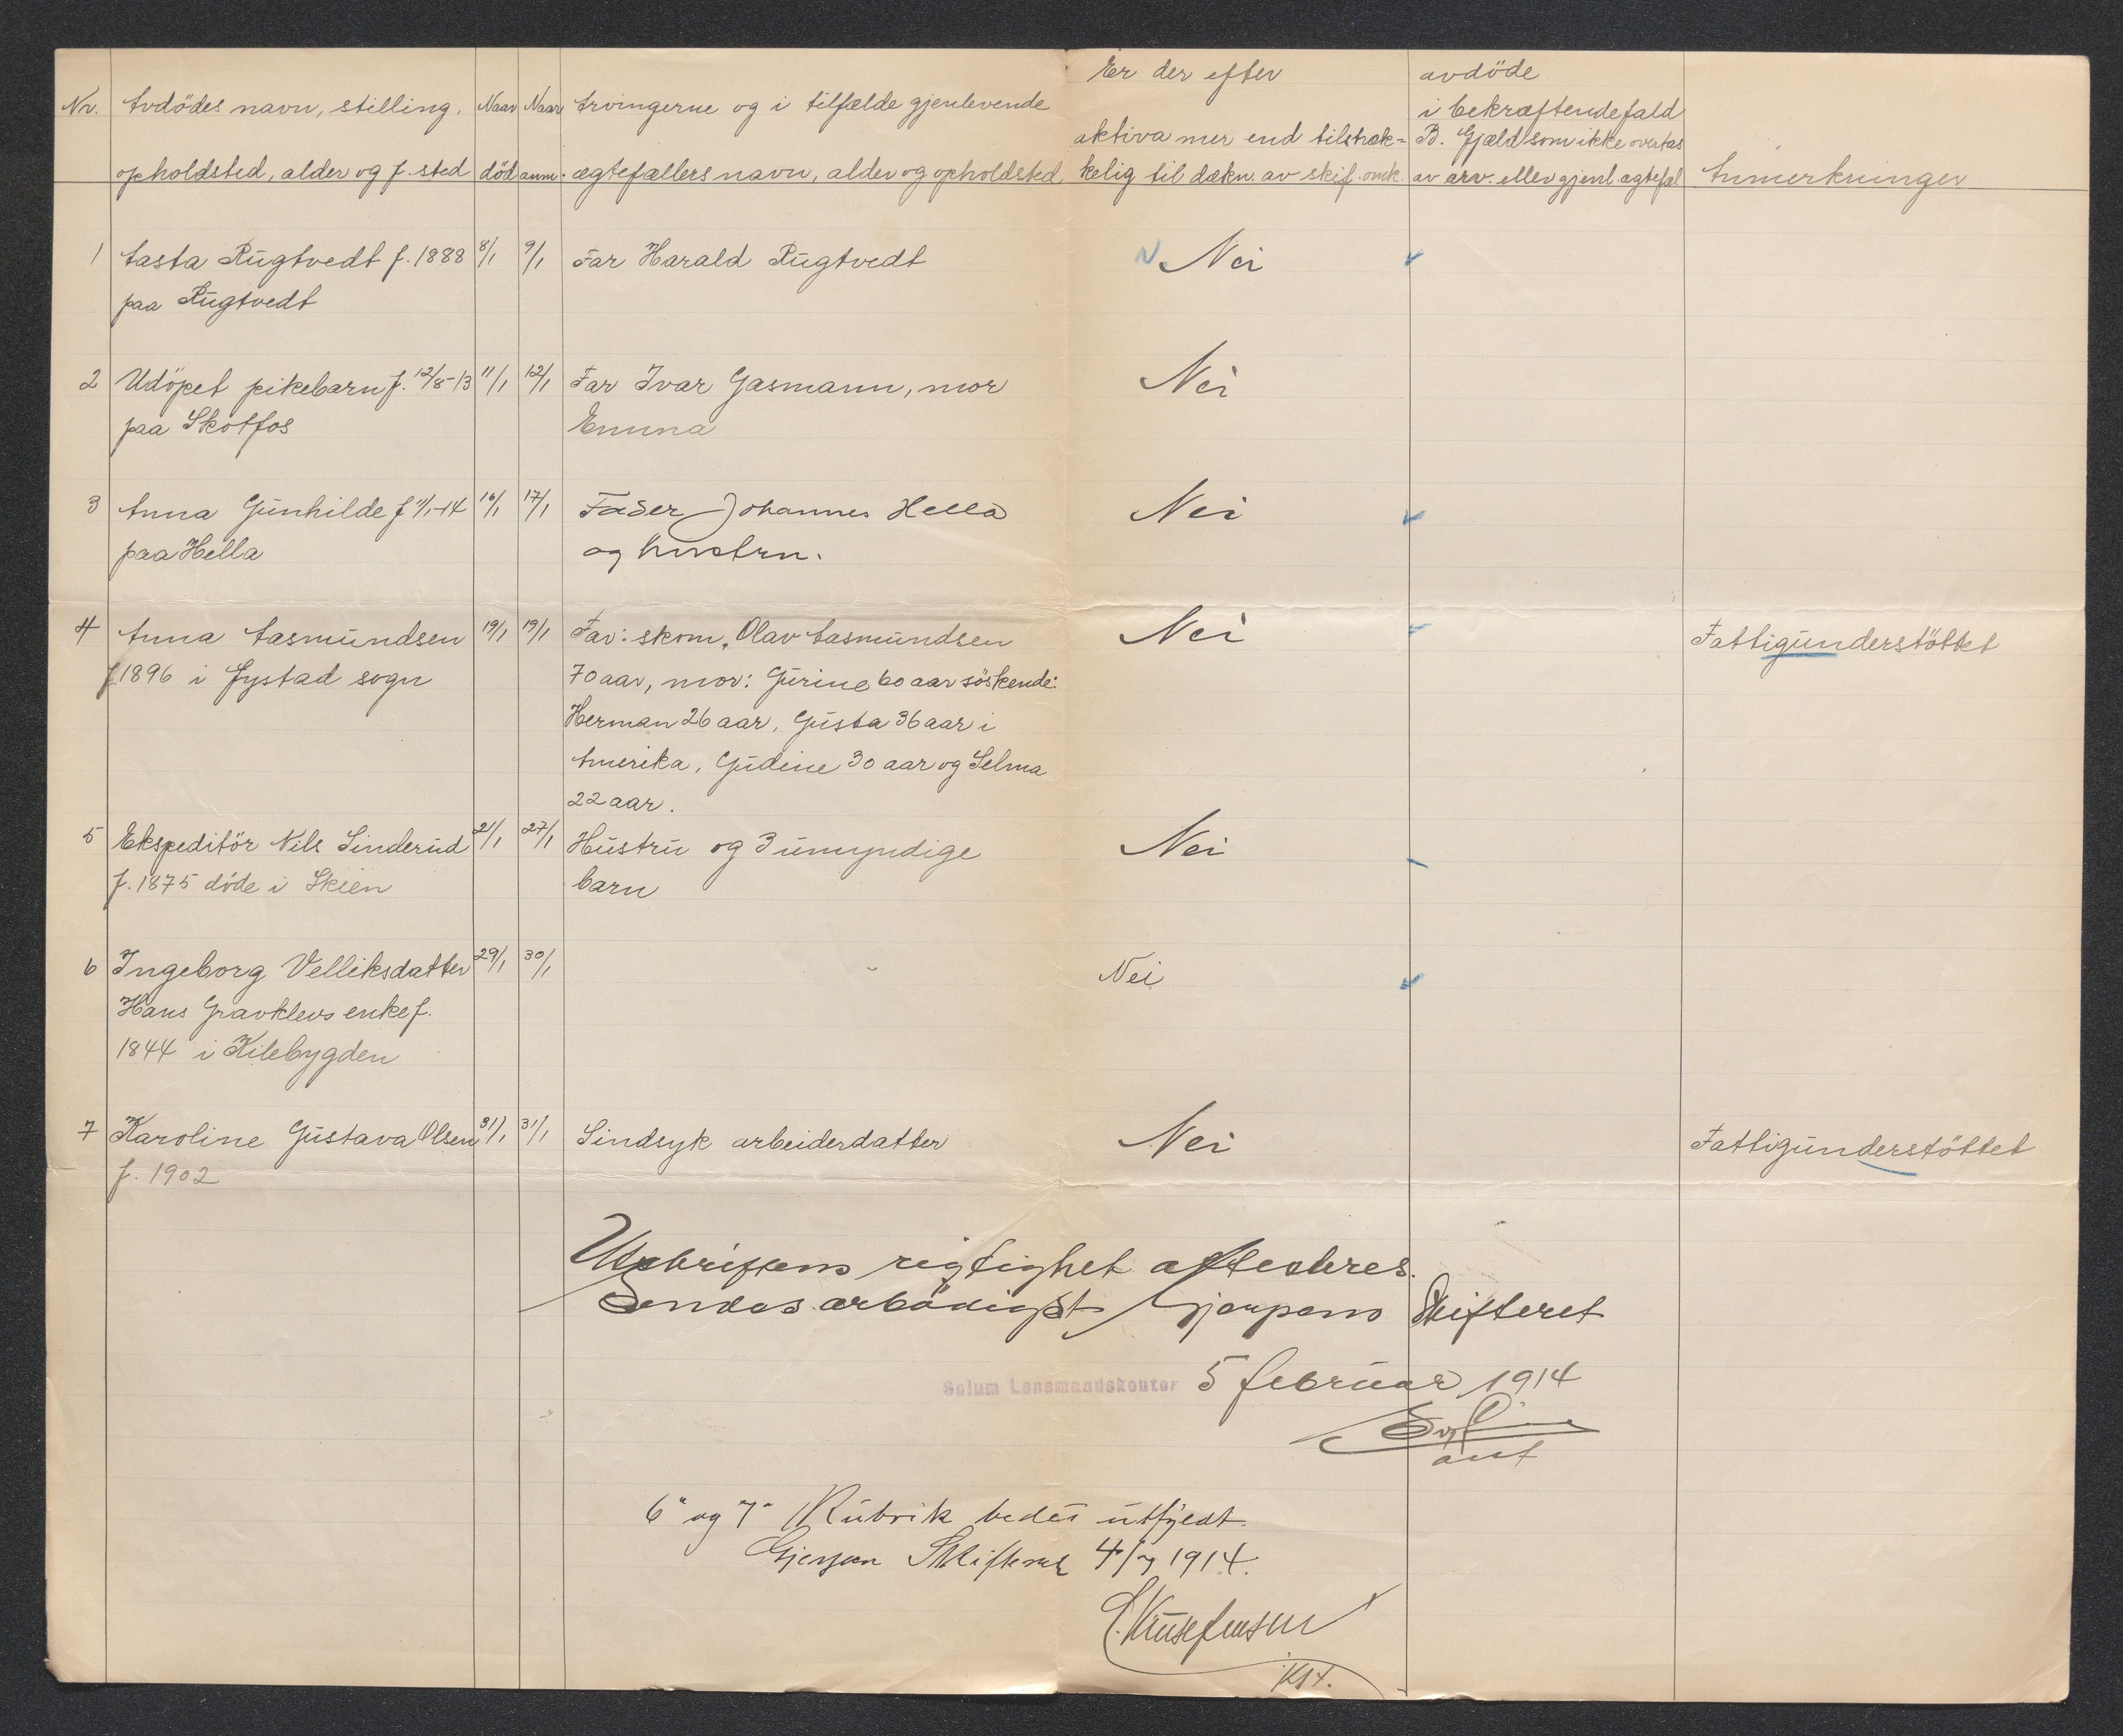 Er der efter avdöde
Nr. Avdödes navn, stilling, Naar Naar Arvingerne og i tilfælde gjenlevende i bekræftende fald
aktiva mer end tilstræk- B. Gjæld som ikke overtas
opholdsted, alder og f. sted död anm. ægtefællers navn, alder og opholdsted kelig til dækn. av skif. omk. av arv. eller gjenl. ægtefæl Anmerkninger
1 Aasta Rugtvedt f. 1888 8/1 9/1 Far Harald Rugtvedt Nei
paa Rugtvedt
2 Udöpet pikebarn f. 12/8-13 11/1 12/1 Far Ivar Gasmann, mor Nei
paa Skotfos Emma
3 Anna Gunhilde f 11/1-14 16/1 17/1 Fader Johannes Hella Nei
paa Hella og hustru.
4 Anna Aasmundsen 19/1 19/1 Far: skom. Olav Aasmundsen Nei Fattigunderstöttet
f. 1896 i Fystad sogn 70 aar, mor: Gurine 60 aar söskende:
Herman 26 aar, Gusta 36 aar i
Amerika, Gudine 30 aar og Selma
22 aar.
5 Ekspeditör Nils Linderud 21/1 27/1 Hustru og 3 umyndige Nei
f. 1875 döde i Skien barn
6 Ingeborg Velliksdatter 29/1 30/1 Nei
Hans Gravklevs enke f.
1844 i Kilebygden
7 Karoline Gustava Olsen 31/1 31/1 Sindsyk arbeiderdatter Nei Fattigunderstöttet
f. 1902
Utskriftens rigtighet attesteres.
Sendes ærbödigst Gjerpens Skifteret
Solum Lensmandskontor 5 februar 1914
6" og 7" Rubrik bedes utfyldt.
Gjerpen Skifteret 1914.
Kst.